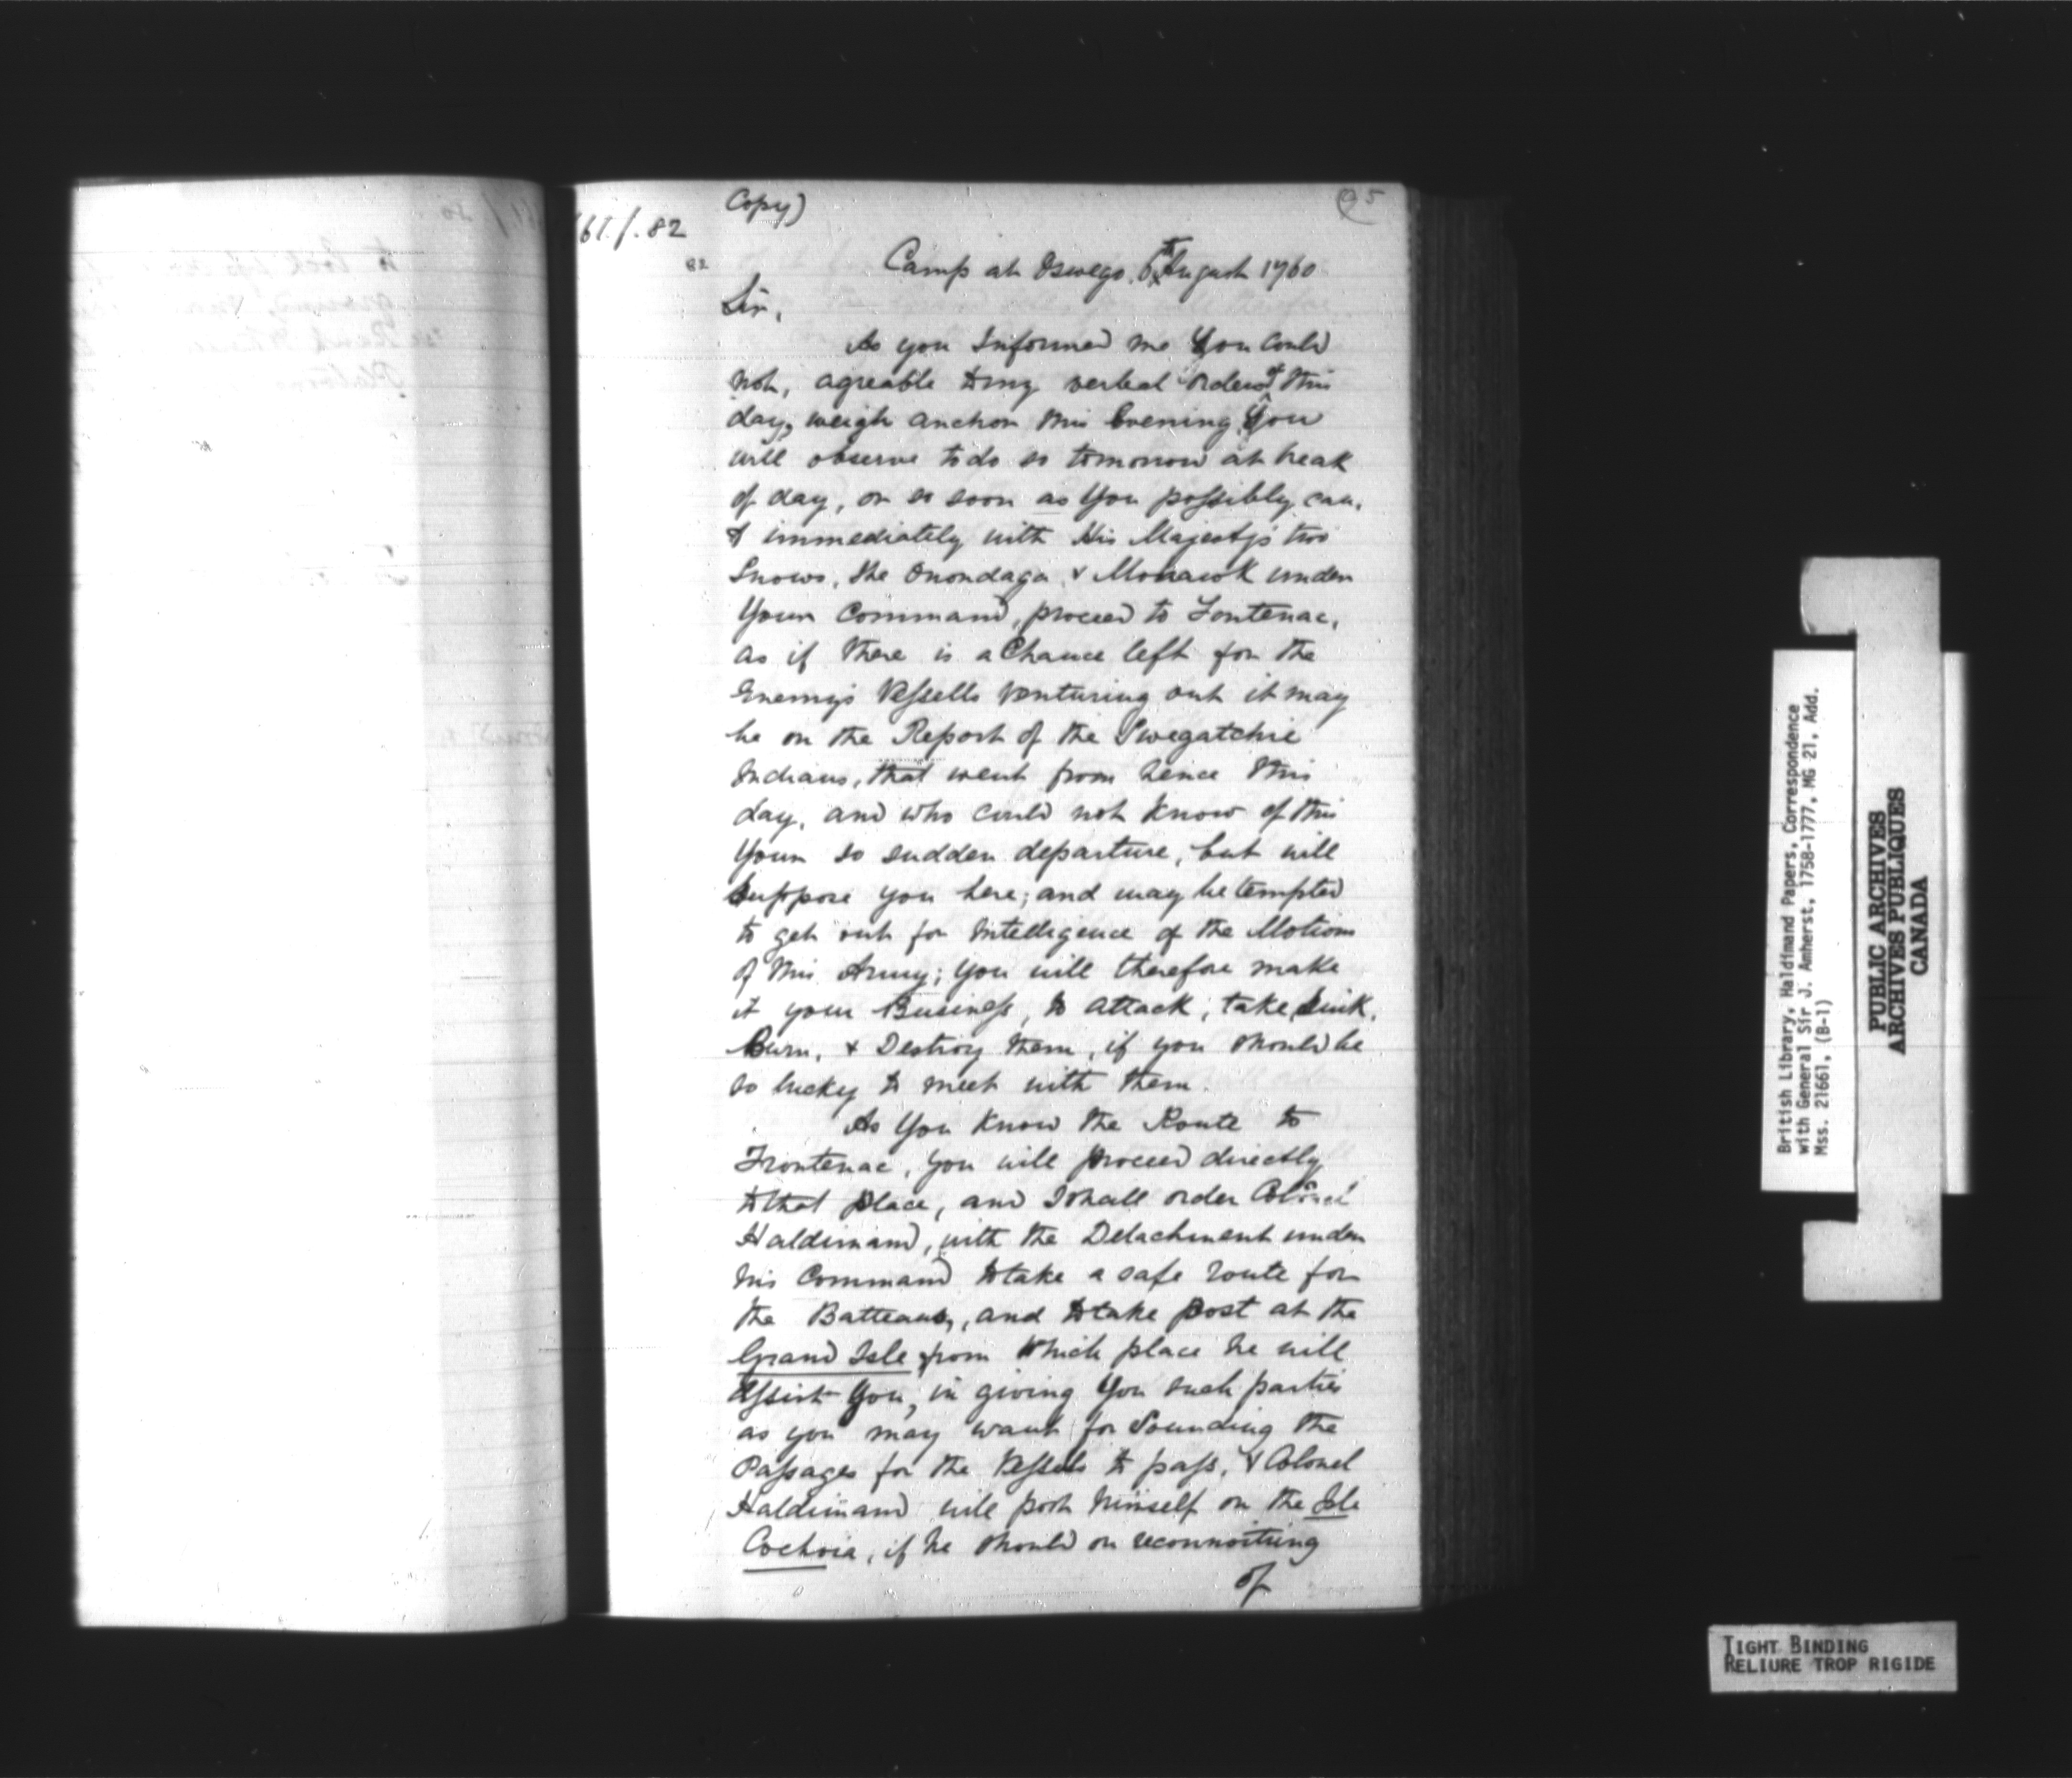 Copy)
95
61./.82
82
Camp at Oswego, 6th August 1760
Sir,
As you Informed me You Could
not, agreable to my verbal orders of this
day, weigh anchor this Evening, You
will observe to do so tomorrow at break
of day, or so soon as You possibly can,
& immediately with His Majesty's two
Snows, the Onondaga, & Mohawk under
Your Command, proceed to Fontenac,
as if there is a Chance left for the
Enemy's Vessells venturing out it may
be on the Report of the Swegatchie
Indians, that went from hence this
day, and who could not know of this
Your so sudden departure, but will
suppose you here; and may be tempted
to get out for Intelligence of the Motions
of this Army; you will therefore make
it your Business, to attack, take, sink,
Burn, & Destroy them, if you should be
so lucky to meet with them.
As You Know the Route to
Frontenac, you will proceed directly
to that place, and I shall order Colonel
Haldimand, with the Detachment under
his Command to take a safe route for
the Batteaus, and to take post at the
Grand Isle from which place he will
assist You, in giving You such parties
as you may want for Sounding the
Passages for the Vessels to pass, & Colonel
Haldimand will post himself on the Isle
Cochoia, if he should on reconnoitring
of
British Library, Haldimand Papers, Correspondence
with General Sir J. Amherst, 1758-1777, MG 21, Add.
Mss. 21661, (B-1)
PUBLIC ARCHIVES
ARCHIVES PUBLIQUES
CANADA
TIGHT BINDING
RELIURE TROP RIGIDE